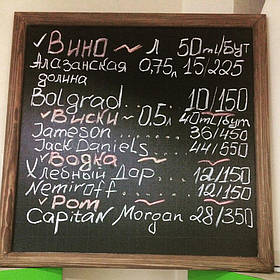 ✓Вино ~ л 50ml/бут
Алазанская 0,75л 15/225
долина
Bolgrad.......... 10/150
✓Виски ~ 0,5л 40ml/бут
Jameson ........ 36/450
Jack Daniels...... 44/550
✓Водка ~
Хлебный Дар.... 12/150
Nemiroff........ 12/150
✓Ром ~
Capitan Morgan 28/350